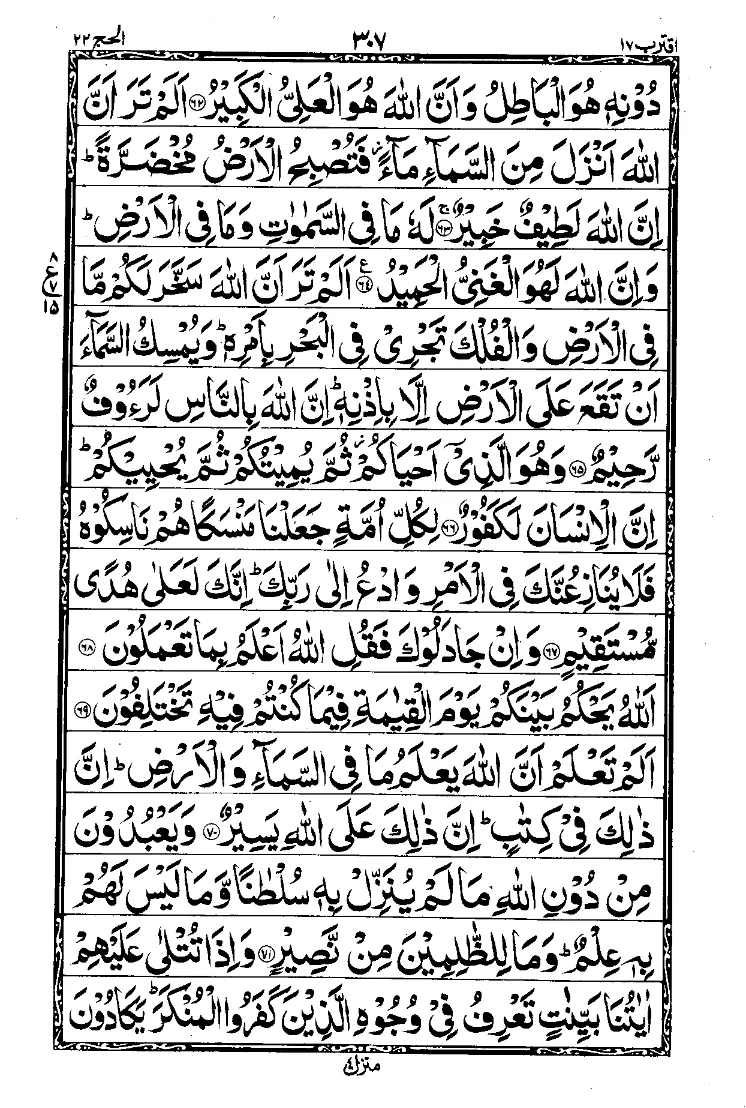 اقترب ١٧ ٣٠٧ الحج ٢٢
دُوْنِهٖ هُوَ الْبَاطِلُ وَاَنَّ اللّٰهَ هُوَ الْعَلِیُّ الْكَبِیْرُ ﴿۶۲﴾ اَلَمْ تَرَ اَنَّ
اللّٰهَ اَنْزَلَ مِنَ السَّمَآءِ مَآءً ؗ فَتُصْبِحُ الْاَرْضُ مُخْضَرَّةً ؕ
اِنَّ اللّٰهَ لَطِیْفٌ خَبِیْرٌ ۚ﴿۶۳﴾ لَهٗ مَا فِی السَّمٰوٰتِ وَمَا فِی الْاَرْضِ ؕ
وَاِنَّ اللّٰهَ لَهُوَ الْغَنِیُّ الْحَمِیْدُ ﴿۶۴﴾ اَلَمْ تَرَ اَنَّ اللّٰهَ سَخَّرَ لَكُمْ مَّا
٨ ع ٧ ١٥
فِی الْاَرْضِ وَالْفُلْكَ تَجْرِیْ فِی الْبَحْرِ بِاَمْرِهٖ ؕ وَیُمْسِكُ السَّمَآءَ
اَنْ تَقَعَ عَلَی الْاَرْضِ اِلَّا بِاِذْنِهٖ ؕ اِنَّ اللّٰهَ بِالنَّاسِ لَرَءُوْفٌ
رَّحِیْمٌ ﴿۶۵﴾ وَهُوَ الَّذِیْۤ اَحْیَاكُمْ ؗ ثُمَّ یُمِیْتُكُمْ ثُمَّ یُحْیِیْكُمْ ؕ
اِنَّ الْاِنْسَانَ لَكَفُوْرٌ ﴿۶۶﴾ لِكُلِّ اُمَّةٍ جَعَلْنَا مَنْسَكًا هُمْ نَاسِكُوْهُ
فَلَا یُنَازِعُنَّكَ فِی الْاَمْرِ وَادْعُ اِلٰی رَبِّكَ ؕ اِنَّكَ لَعَلٰی هُدًی
مُّسْتَقِیْمٍ ﴿۶۷﴾ وَاِنْ جَادَلُوْكَ فَقُلِ اللّٰهُ اَعْلَمُ بِمَا تَعْمَلُوْنَ ﴿۶۸﴾
اَللّٰهُ یَحْكُمُ بَیْنَكُمْ یَوْمَ الْقِیٰمَةِ فِیْمَا كُنْتُمْ فِیْهِ تَخْتَلِفُوْنَ ﴿۶۹﴾
اَلَمْ تَعْلَمْ اَنَّ اللّٰهَ یَعْلَمُ مَا فِی السَّمَآءِ وَالْاَرْضِ ؕ اِنَّ
ذٰلِكَ فِیْ كِتٰبٍ ؕ اِنَّ ذٰلِكَ عَلَی اللّٰهِ یَسِیْرٌ ﴿۷۰﴾ وَیَعْبُدُوْنَ
مِنْ دُوْنِ اللّٰهِ مَا لَمْ یُنَزِّلْ بِهٖ سُلْطٰنًا وَّمَا لَیْسَ لَهُمْ
بِهٖ عِلْمٌ ؕ وَمَا لِلظّٰلِمِیْنَ مِنْ نَّصِیْرٍ ﴿۷۱﴾ وَاِذَا تُتْلٰی عَلَیْهِمْ
اٰیٰتُنَا بَیِّنٰتٍ تَعْرِفُ فِیْ وُجُوْهِ الَّذِیْنَ كَفَرُوا الْمُنْكَرَ ؕ یَكَادُوْنَ
منزل ٤